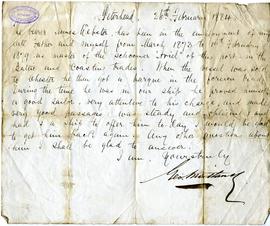 Peterhead 26th February 1884
The bearer James Webster has been in the employment of my
late Father and myself from March 1878 to 14th February
as master of the schooner Ariel of this port in the
Baltic and Coasting Trades. When the vessel was sold
to Wheeler he then got a barque in the Foreign trade
During the time he was in our ship he proved himself
a good sailor, very attentive to his charge, and made
very good passages, was steady and obliging and
had I a ship to offer him to day I would be glad
to get him back again. Any other question about
him I shall be glad to answer.
I am, Yours truly